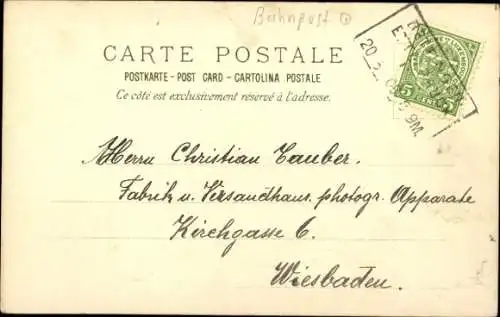 Bahnpost
CARTE POSTALE
POSTKARTE - POST CARD - CARTOLINA POSTALE
Ce côté est exclusivement réservé à l'adresse.
5
5
CENT
20. 2.
9M.
Herrn Christian Tauber.
Fabrik u. Versandhaus photogr. Apparate
Kirchgasse 6.
Wiesbaden.